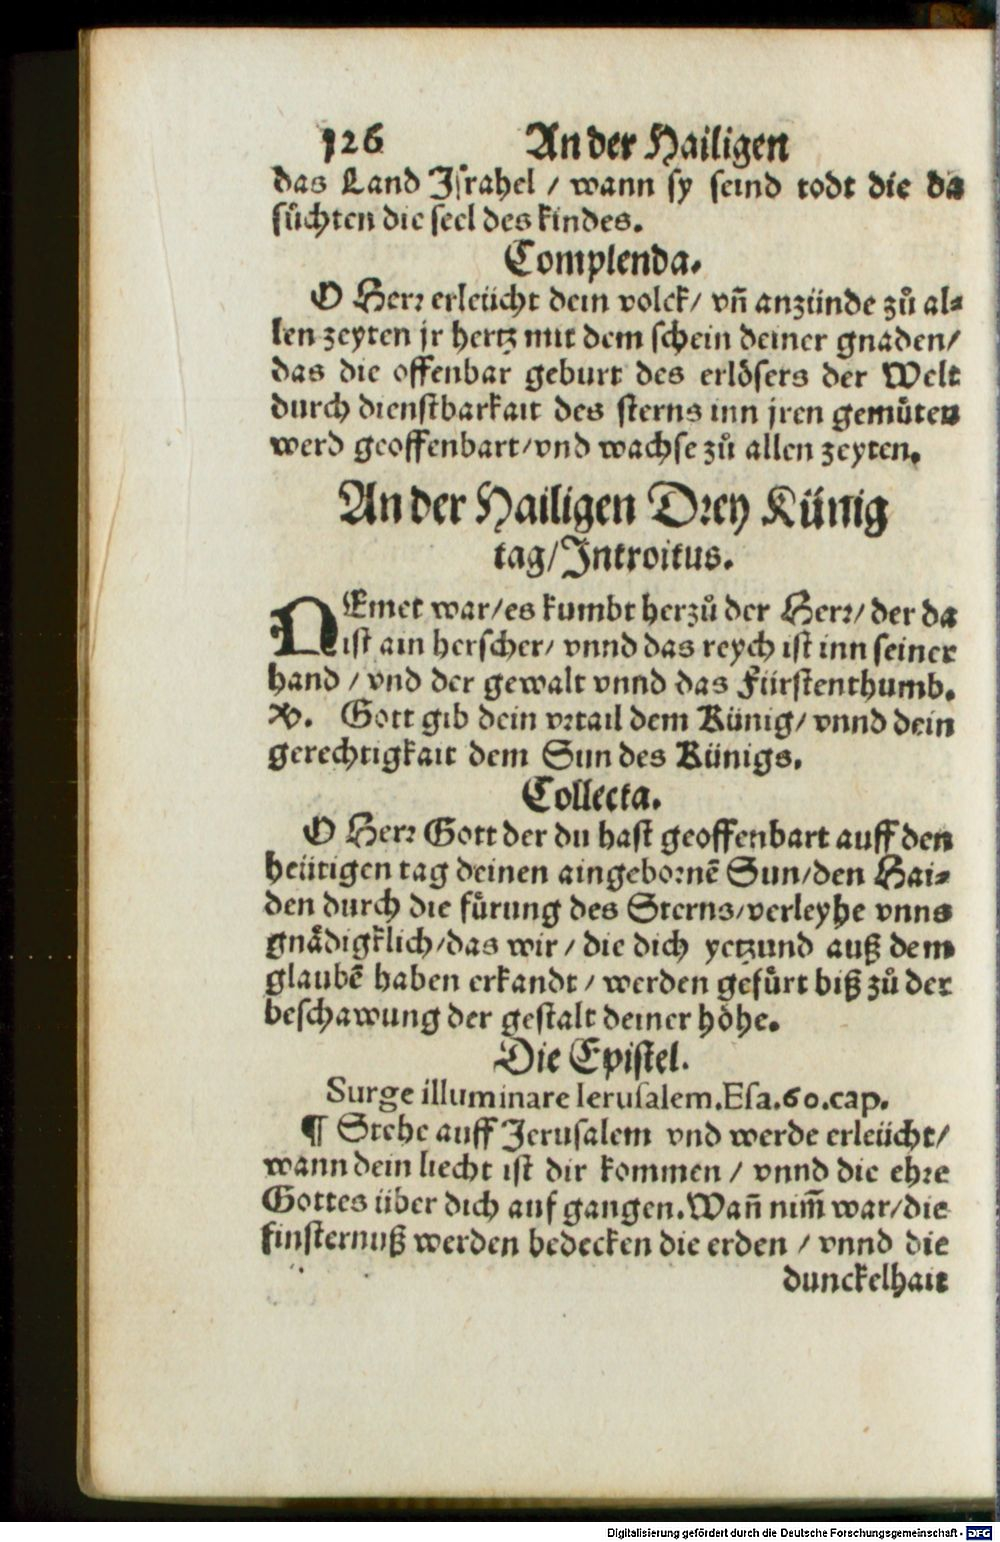 126 An der Hailigen
das Land Jsrahel / wann sy seind todt die da
sůchten die seel des kindes.
Complenda.
O Herr erleücht dein volck / vñ anzünde zů al⸗
len zeyten jr hertz mit dem schein deiner gnaden /
das die offenbar geburt des erlösers der Welt
durch dienstbarkait des sterns inn jren gemůten
werd geoffenbart / vnd wachse zů allen zeyten.
An der Hailigen Drey Künig
tag / Introitus.
NEmet war / es kumbt herzů der Herr / der da
ist ain herscher / vnnd das reych ist inn seiner
hand / vnd der gewalt vnnd das Fürstenthumb.
V. Gott gib dein vrtail dem Künig / vnnd dein
gerechtigkait dem Sun des Künigs.
Collecta.
O Herr Gott der du hast geoffenbart auff den
heütigen tag deinen aingebornẽ Sun / den Hai⸗
den durch die fůrung des Sterns / verleyhe vnns
gnädigklich / das wir / die dich yetzund auß dem
glaubẽ haben erkandt / werden gefůrt biß zů der
beschawung der gestalt deiner höhe.
Die Epistel.
Surge illuminare Ierusalem. Esa. 60. cap.
¶ Stehe auff Jerusalem vnd werde erleücht /
wann dein liecht ist dir kommen / vnnd die ehre
Gottes über dich auf gangen. Wañ nim̃ war / die
finsternuß werden bedecken die erden / vnnd die
dunckelhait
Digitalisierung gefördert durch die Deutsche Forschungsgemeinschaft - DFG